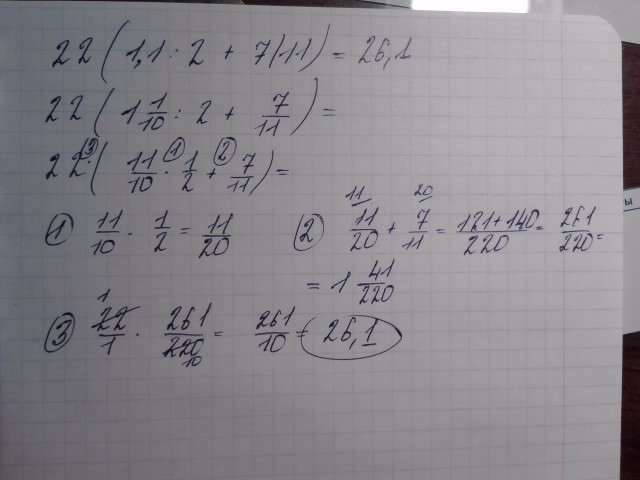 22 ( 1,1 : 2 + 7/11 ) = 26,1
22 ( 1 1/10 : 2 + 7/11 ) =
22 ·③ ( 11/10 ·① 1/2 +② 7/11 ) =
① 11/10 · 1/2 = 11/20
② 11/20 (11) + 7/11 (20) = 121+140/220 = 261/220 =
= 1 41/220
③ 22/1 · 261/220 = 261/10 = 26,1
1
10
ы